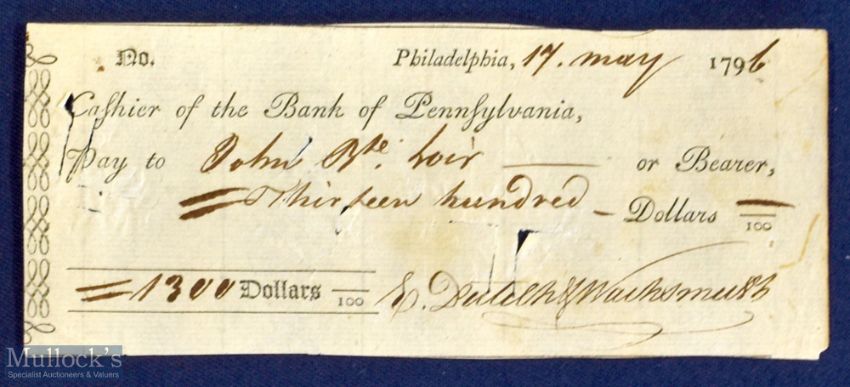 No. Philadelphia, 17. may 1796
Caſhier of the Bank of Pennſylvania,
Pay to John Bte. Loir or Bearer,
= Thirteen hundred – Dollars — 100
= 1300 Dollars — 100 E. Dutilh & Wachsmuth
Mullock's
Specialist Auctioneers & Valuers